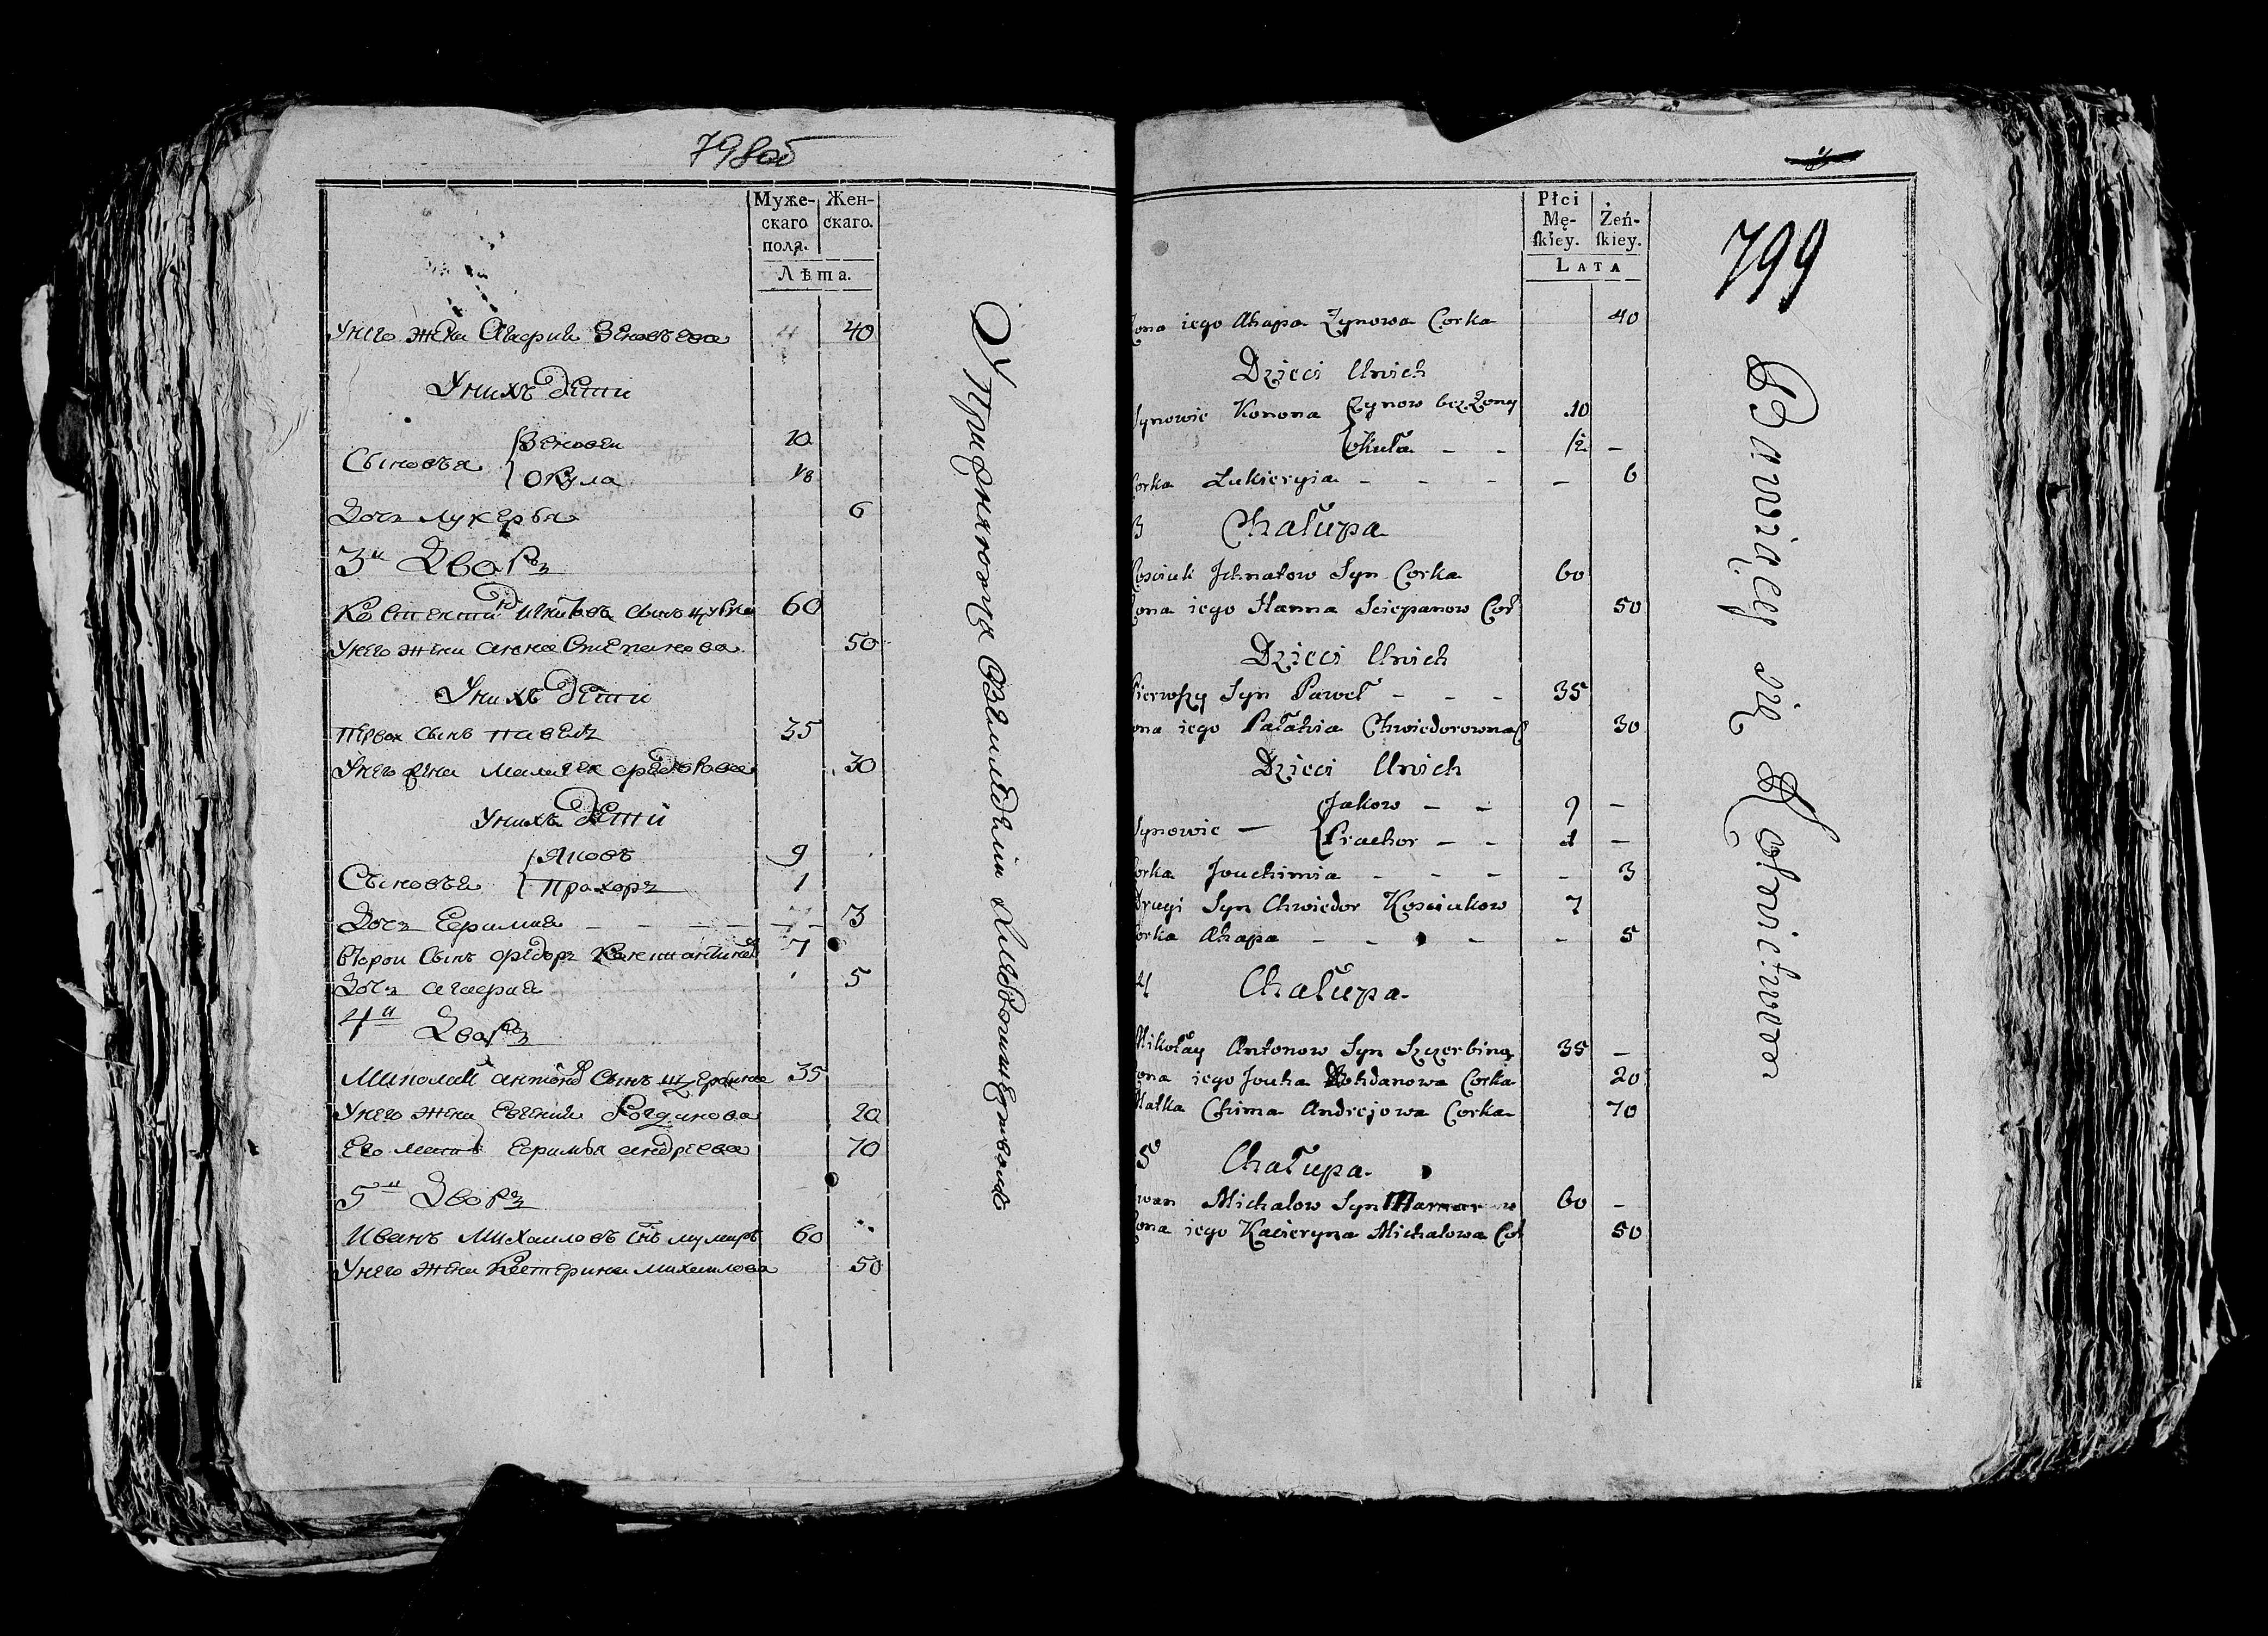 798об
Муже-
скаго
пола.
Жен-
скаго.
Лѣта.
Унего жена Агафия Зеновъева 40
Унихъ дети
Зеновеи 10
Сыновъя
Окула 1/2
Дочъ лукеръя 6
3й Дворъ
Костентин Игнатовъ сынъ 60
Унего жена анна Степанова 50
Унихъ дети
первои сынъ павелъ 35
Унего жена Федорова 30
Унихъ дети
Яковъ 9
Сыновъя
Прахоръ 1
Дочъ Ефимия 3
второи сынъ Федоръ Костантинов 7
Дочъ агафия 5
4й Дворъ
Миколаи антонов сынъ щербина 35
Унего жена Евгения Богданова 20
Его мать Ефимъя андреева 70
5й Дворъ
Иванъ Михаиловъ снъ 60
Унего жена Катерина михаилова 50
Упраженяющия въземледелии
Płci
Mę-
skiey.
Żeń-
skiey.
LATA
799
Zona iego Ahapa Zynowa Corka 40
Dzieci Unich
Synowie Konona Zynow bez Zony 10
Okuła - - 1/2 -
Corka Łukieryia - - - - 6
3 Chałupa
Kosciuk Jhnatow Syn Corka 60
Zona iego Hanna Sciepanow Cor 50
Dzieci Unich
Pierwszy Syn Paweł - - - 35
Zona iego Pałahia Chwiedorowna C 30
Dzieci Unich
Jakow - - 9 -
Synowie -
Prachor - - 1 -
Corka Jouchimia - - - - 3
Drugi Syn Chwiedor Kosciukow 7
Corka Ahapa - - - - 5
4 Chałupa
Mikołay Antonow Syn Szczerbina 35 -
Zona iego Jouha Bohdanowa Corka 20
Matka Chima Andrejowa Corka 70
5 Chałupa
Iwan Michałow Syn 60 -
Zona iego Kacieryna Michałowa Cor 50
Bawiący się Rolnictwem